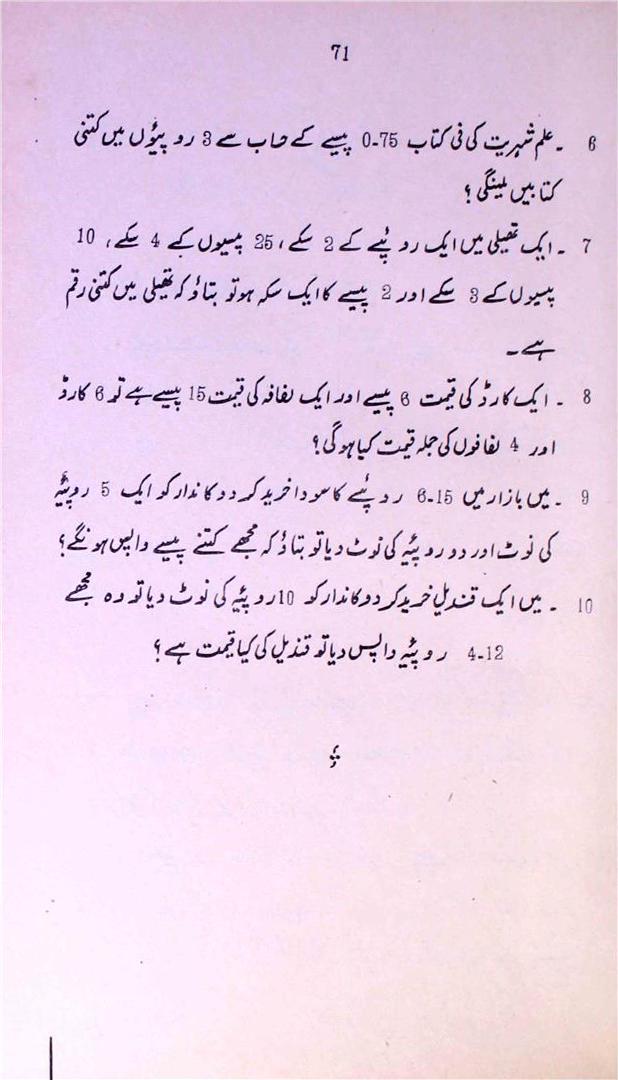 71
6 ۔ علم شہریت کی فی کتاب 75-0 پیسے کے حساب سے 3 روپیوں میں کتنی
کتابیں ملینگی ؟
7 ۔ ایک تھیلی میں ایک روپیے کے 2 سکے ، 25 پیسوں کے 4 سکے ، 10
پیسوں کے 3 سکے اور 2 پیسے کا ایک سکہ ہو تو بتاؤ کہ تھیلی میں کتنی رقم
ہے ۔
8 ۔ ایک کارڈ کی قیمت 6 پیسے اور ایک لفافہ کی قیمت 15 پیسے ہے تو 6 کارڈ
اور 4 لفافوں کی جملہ قیمت کیا ہوگی ؟
9 ۔ میں بازار میں 15-6 روپئے کا سودا خرید کر دوکاندار کو ایک 5 روپیئے
کی نوٹ اور دو روپیئے کی نوٹ دیا تو بتاؤ کہ مجھے کتنے پیسے واپس ہونگے ؟
10 ۔ میں ایک قندیل خرید کر دوکاندار کو 10 روپیئے کی نوٹ دیا تو وہ مجھے
12-4 روپیئے واپس دیا تو قندیل کی کیا قیمت ہے ؟